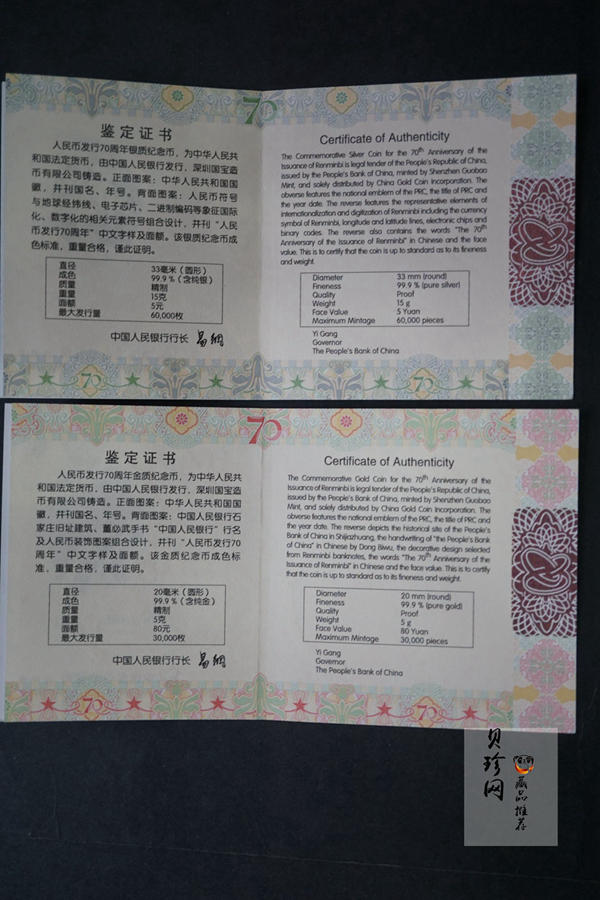 70
鉴定证书
人民币发行70周年银质纪念币，为中华人民共
和国法定货币，由中国人民银行发行，深圳国宝造
币有限公司铸造。正面图案：中华人民共和国国
徽，并刊国名、年号。背面图案：人民币符号
与地球经纬线、电子芯片、二进制编码等象征国际
化、数字化的相关元素符号组合设计，并刊“人民
币发行70周年”中文字样及面额。该银质纪念币成
色标准，重量合格，谨此证明。
直径 33毫米（圆形）
成色 99.9％（含纯银）
质量 精制
重量 15克
面额 5元
最大发行量 60,000枚
中国人民银行行长 易纲
Certificate of Authenticity
The Commemorative Silver Coin for the 70th Anniversary of the
Issuance of Renminbi is legal tender of the People's Republic of China,
issued by the People's Bank of China, minted by Shenzhen Guobao
Mint, and solely distributed by China Gold Coin Incorporation. The
obverse features the national emblem of the PRC, the title of PRC and
the year date. The reverse features the representative elements of
internationalization and digitization of Renminbi including the currency
symbol of Renminbi, longitude and latitude lines, electronic chips and
binary codes. The reverse also contains the words "The 70th
Anniversary of the Issuance of Renminbi" in Chinese and the face
value. This is to certify that the coin is up to standard as to its fineness
and weight.
Diameter 33 mm (round)
Fineness 99.9 % (pure silver)
Quality Proof
Weight 15 g
Face Value 5 Yuan
Maximum Mintage 60,000 pieces
Yi Gang
Governor
The People's Bank of China
70
70
70
鉴定证书
人民币发行70周年金质纪念币，为中华人民共
和国法定货币，由中国人民银行发行，深圳国宝造
币有限公司铸造。正面图案：中华人民共和国国
徽，并刊国名、年号。背面图案：中国人民银行石
家庄旧址建筑、董必武手书“中国人民银行”行名
及人民币装饰图案组合设计，并刊“人民币发行70
周年”中文字样及面额。该金质纪念币成色标
准，重量合格，谨此证明。
直径 20毫米（圆形）
成色 99.9％（含纯金）
质量 精制
重量 5克
面额 80元
最大发行量 30,000枚
中国人民银行行长 易纲
Certificate of Authenticity
The Commemorative Gold Coin for the 70th Anniversary of the
Issuance of Renminbi is legal tender of the People's Republic of China,
issued by the People's Bank of China, minted by Shenzhen Guobao
Mint, and solely distributed by China Gold Coin Incorporation. The
obverse features the national emblem of the PRC, the title of PRC and
the year date. The reverse depicts the historical site of the People's
Bank of China in Shijiazhuang, the handwriting of "the People's Bank
of China" in Chinese by Dong Biwu, the decorative design selected
from Renminbi banknotes, the words "The 70th Anniversary of the
Issuance of Renminbi" in Chinese and the face value. This is to certify
that the coin is up to standard as to its fineness and weight.
Diameter 20 mm (round)
Fineness 99.9 % (pure gold)
Quality Proof
Weight 5 g
Face Value 80 Yuan
Maximum Mintage 30,000 pieces
Yi Gang
Governor
The People's Bank of China
70
70
贝珍网
藏品推荐